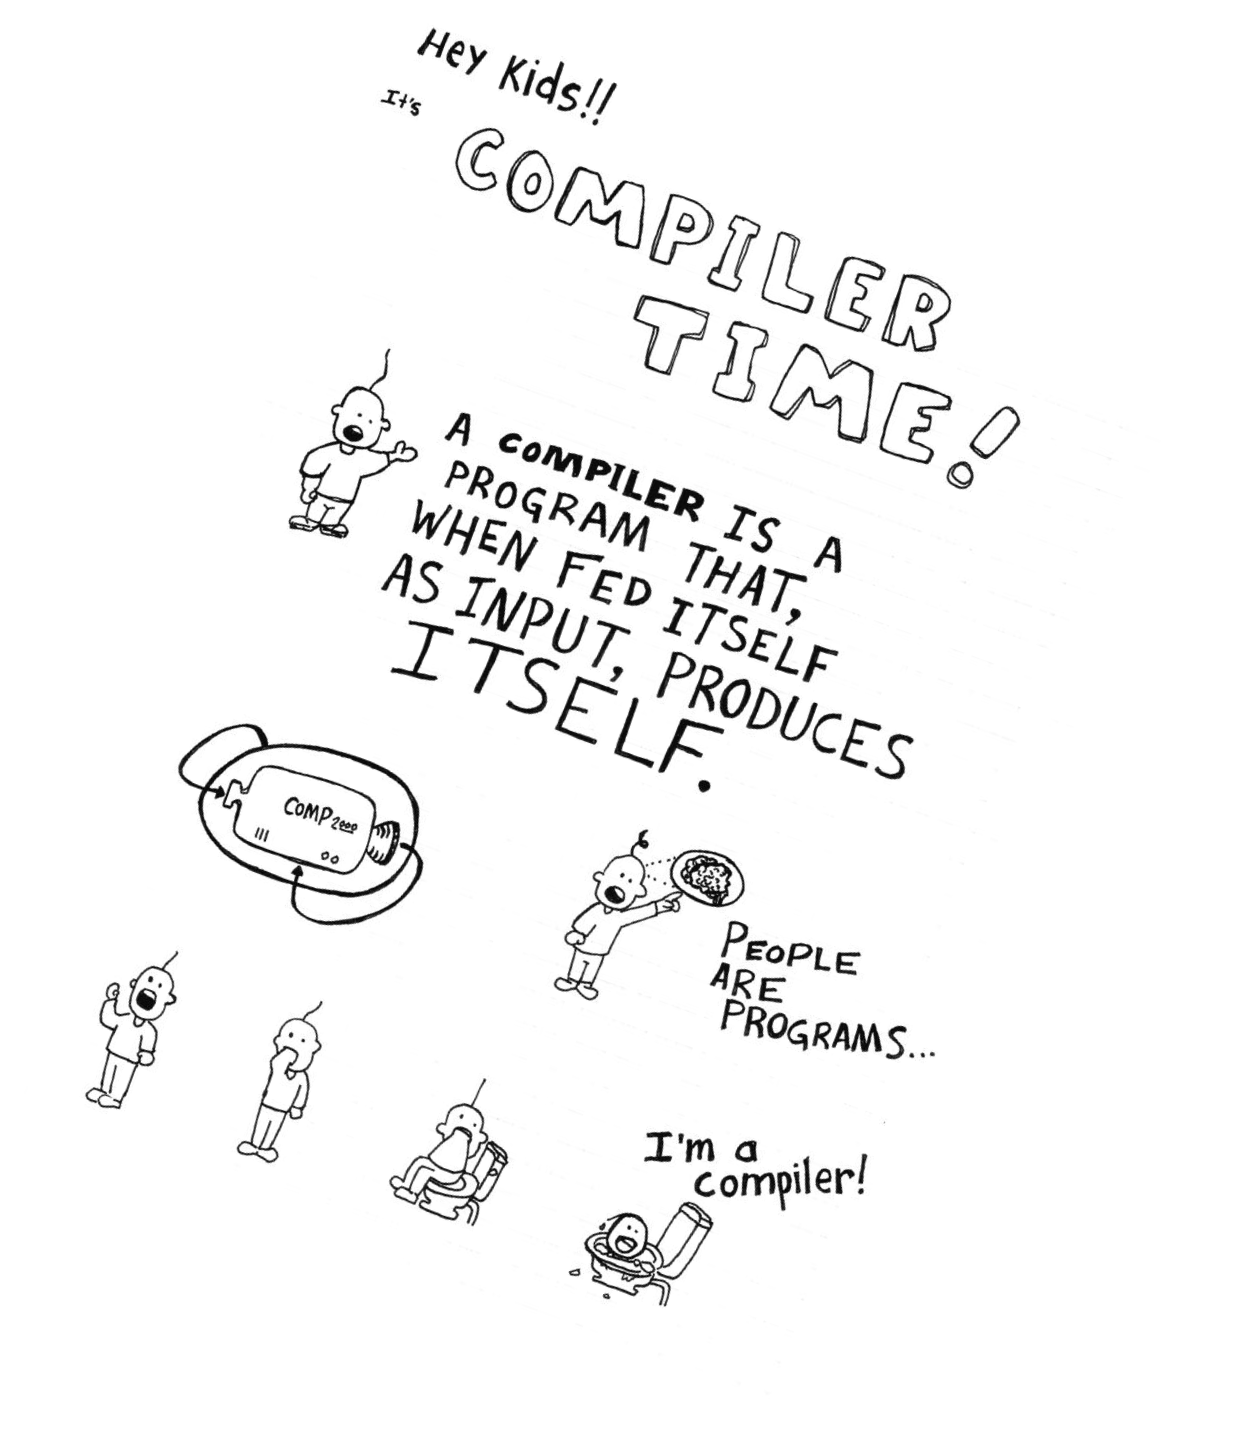 Hey Kids!!
It's
COMPILER
TIME!
A COMPILER IS A
PROGRAM THAT,
WHEN FED ITSELF
AS INPUT, PRODUCES
ITSELF.
COMP2000
PEOPLE
ARE
PROGRAMS...
I'm a
compiler!